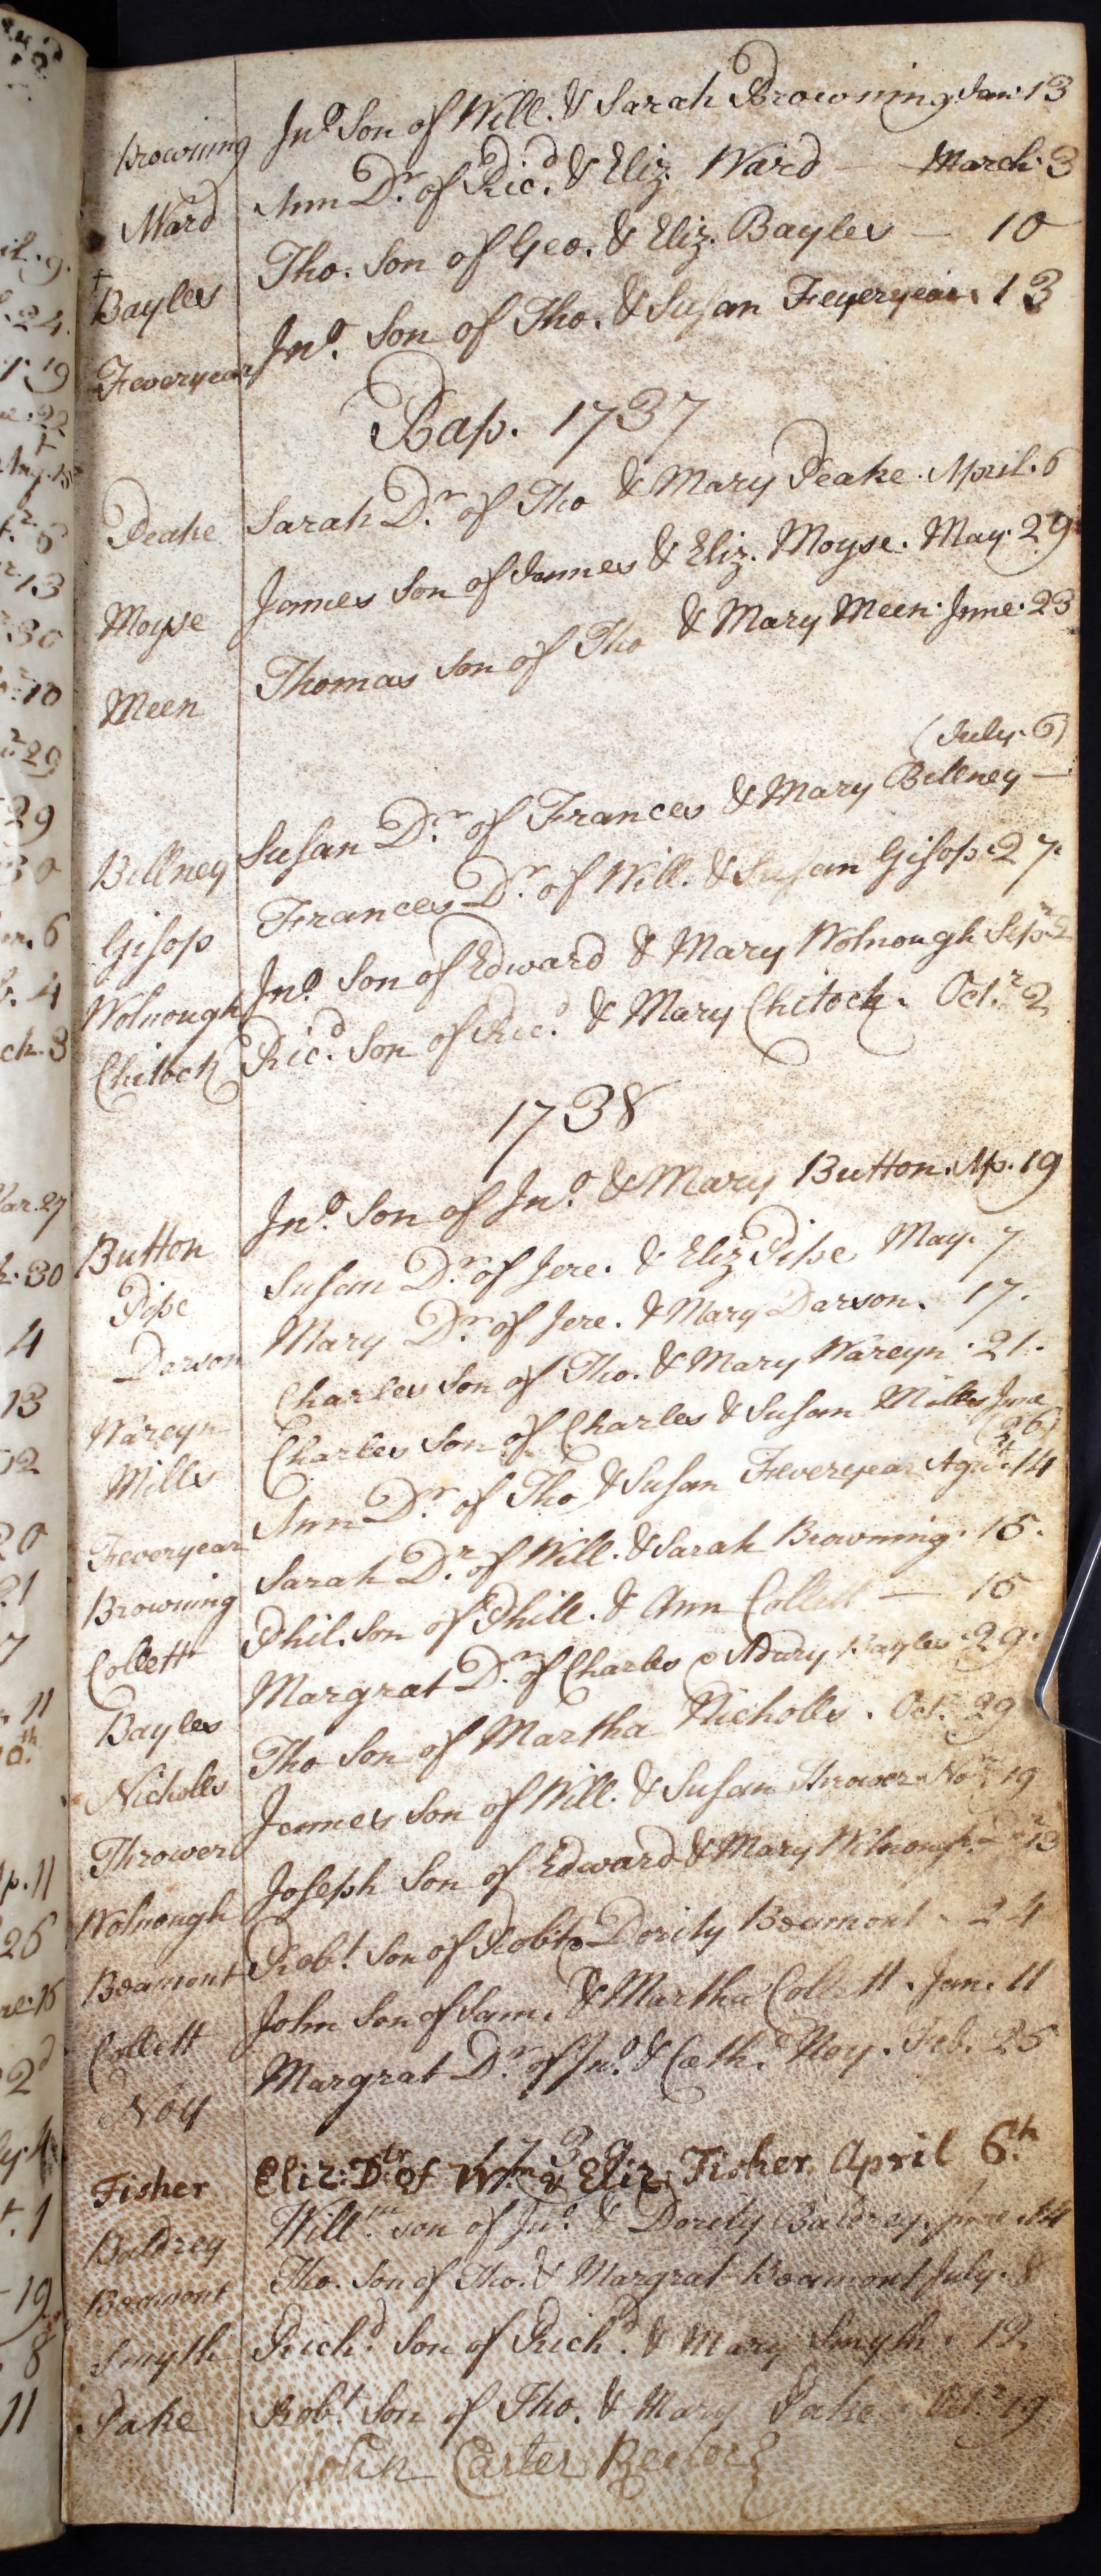 Browning Jno. Son of Will. & Sarah Browning Jan: 13
Ward Ann Dr. of Ricd. & Eliz. Ward — March. 3
Bayles Tho. Son of Geo. & Eliz. Bayles — 10
Feveryear Jno. Son of Tho. & Susan Feveryear 13
Bap. 1737
Peake Sarah Dr. of Tho & Mary Peake. April. 6
Moyse James Son of James & Eliz. Moyse. May. 29
Meen Thomas Son of Tho & Mary Meen. June. 23
(July. 6)
Billney Susan Dr. of Frances & Mary Billney —
Gisop Frances Dr. of Will. & Susan Gisop. 27.
Wolnough Jno. Son of Edward & Mary Wolnough Sepr. 2
Chitock Ricd. Son of Ricd. & Mary Chitock. Octr. 2
1738
Button Jno. Son of Jno. & Mary Button. Ap. 19
Pipe Susan Dr. of Jere. & Eliz Pipe May. 7
Darson Mary Dr. of Jere. & Mary Darson. 17.
Wareyn Charles Son of Tho. & Mary Wareyn. 21.
Mills Charles Son of Charles & Susan Mills June
26)
Feveryear Ann Dr. of Tho & Susan Feveryear 14
Browning Sarah Dr. of Will. & Sarah Browning. 15.
Collett Phil. Son of Phill. & Ann Collett — 15
Bayles Margrat Dr. of Charles & Mary Bayles. 29.
Nicholls Tho Son of Martha Nicholls. Oct. 29
Thrower James Son of Will. & Susan Thrower Nor. 19
Wolnough Joseph Son of Edward & Mary Wolnough 13
Beamont Robt. Son of Robt & Dority Beamont - 24
Collett John Son of Sam. & Martha Collett. Jan. 11
Noy Margrat Dr. of Jno. & Cath. Noy. Feb. 25
1739
Fisher Eliz: Dtr of Wm. & Eliz: Fisher April 6th
Baldrey Willm. son of Jno. & Dority Baldrey. June 14
Beamont Tho. Son of Tho. & Margrat Beamont July. 8
Smyth Richd. Son of Richd. & Mary Smyth. 19.
Pake Robt. Son of Tho. & Mary Pake Octr. 19
John Carter Rector